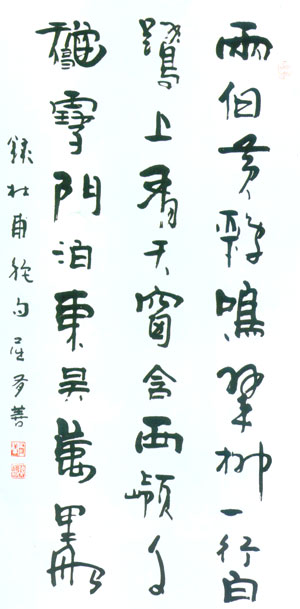 兩個黄鸝鳴翠柳一行白
鷺上青天窗含西嶺千
秋雪門泊東吴萬里船
録杜甫絶句